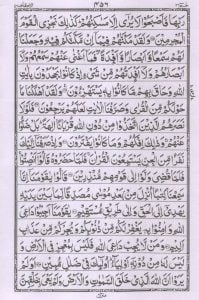 رَبِّهَا فَاَصْبَحُوْا لَا يُرٰٓى اِلَّا مَسٰكِنُهُمْ ؕ كَذٰلِكَ نَجْزِی الْقَوْمَ
الْمُجْرِمِیْنَ ۝ وَلَقَدْ مَكَّنّٰهُمْ فِیْمَاۤ اِنْ مَّكَّنّٰكُمْ فِیْهِ وَجَعَلْنَا
لَهُمْ سَمْعًا وَّاَبْصَارًا وَّاَفْـِٕدَةً ۖ فَمَاۤ اَغْنٰی عَنْهُمْ سَمْعُهُمْ وَلَاۤ
اَبْصَارُهُمْ وَلَاۤ اَفْـِٕدَتُهُمْ مِّنْ شَیْءٍ اِذْ كَانُوْا یَجْحَدُوْنَ بِاٰیٰتِ
اللّٰهِ وَحَاقَ بِهِمْ مَّا كَانُوْا بِهٖ یَسْتَهْزِءُوْنَ ۝ وَلَقَدْ اَهْلَكْنَا مَا
حَوْلَكُمْ مِّنَ الْقُرٰی وَصَرَّفْنَا الْاٰیٰتِ لَعَلَّهُمْ یَرْجِعُوْنَ ۝ فَلَوْلَا
نَصَرَهُمُ الَّذِیْنَ اتَّخَذُوْا مِنْ دُوْنِ اللّٰهِ قُرْبَانًا اٰلِهَةً ؕ بَلْ ضَلُّوْا
عَنْهُمْ ۚ وَذٰلِكَ اِفْكُهُمْ وَمَا كَانُوْا یَفْتَرُوْنَ ۝ وَاِذْ صَرَفْنَاۤ اِلَیْكَ
نَفَرًا مِّنَ الْجِنِّ یَسْتَمِعُوْنَ الْقُرْاٰنَ ۚ فَلَمَّا حَضَرُوْهُ قَالُوْۤا اَنْصِتُوْا ۚ
فَلَمَّا قُضِیَ وَلَّوْا اِلٰی قَوْمِهِمْ مُّنْذِرِیْنَ ۝ قَالُوْا یٰقَوْمَنَاۤ اِنَّا
سَمِعْنَا كِتٰبًا اُنْزِلَ مِنْۢ بَعْدِ مُوْسٰی مُصَدِّقًا لِّمَا بَیْنَ یَدَیْهِ
یَهْدِیْۤ اِلَی الْحَقِّ وَاِلٰی طَرِیْقٍ مُّسْتَقِیْمٍ ۝ یٰقَوْمَنَاۤ اَجِیْبُوْا دَاعِیَ
اللّٰهِ وَاٰمِنُوْا بِهٖ یَغْفِرْ لَكُمْ مِّنْ ذُنُوْبِكُمْ وَیُجِرْكُمْ مِّنْ عَذَابٍ
اَلِیْمٍ ۝ وَمَنْ لَّا یُجِبْ دَاعِیَ اللّٰهِ فَلَیْسَ بِمُعْجِزٍ فِی الْاَرْضِ وَ
لَیْسَ لَهٗ مِنْ دُوْنِهٖۤ اَوْلِیَآءُ ؕ اُولٰٓئِكَ فِیْ ضَلٰلٍ مُّبِیْنٍ ۝ اَوَلَمْ
یَرَوْا اَنَّ اللّٰهَ الَّذِیْ خَلَقَ السَّمٰوٰتِ وَالْاَرْضَ وَلَمْ یَعْیَ بِخَلْقِهِنَّ